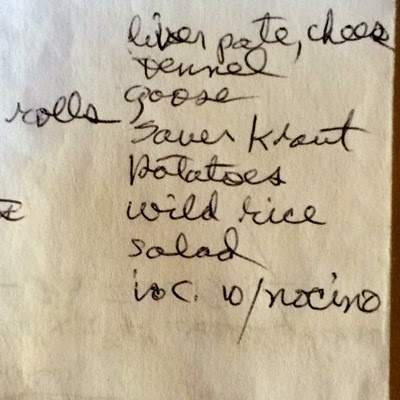 liver pate, chees
fennel
rolls goose
Sauer Kraut
Potatoes
wild rice
salad
w/nocino